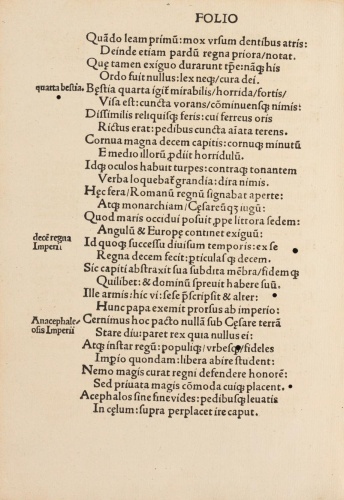 FOLIO
Quãdo leam primũ: mox vrsum dentibus atris:
Deinde etiam pardũ regna priora/notat.
Quę tamen exiguo durarunt tp̃e: nãq̧ his
Ordo fuit nullus: lex neq̧/cura dei.
quarta bestia.
Bęstia quarta igit̃ mirabilis/horrida/fortis/
Visa est: cũcta vorans/cõminuensq̧ nimis:
Dissimilis reliquisq̧ feris: cui ferreus oris
Rictus erat: pedibus cuncta aĩata terens.
Cornua magna decem capitis: cornuq̧ minutũ
E medio illorũ ꝓdiit horridulũ.
Idq̧ oculos habuit turpes: contraq̧ tonantem
Verba loquebat̃ grandia: dira nimis.
Hęc fera/Romanũ regnũ signabat aperte:
Atq̧ monarchiam/Cęsareũq̧ iugũ:
Quod maris occidui posuit ꝓpe littora sedem:
Angulũ & Europę continet exiguũ:
decẽ regna
Imperii
Id quoq̧ successu diuisum temporis: ex se
Regna decem fecit: ꝑticulasq̧ decem.
Sic capiti abstraxit sua subdita mẽbra/fidemq̧
Quilibet: & dominũ spreuit habere suũ.
Ille armis: hic vi: sese p̃scripsit & alter:
Hunc papa exemit prorsus ab imperio:
Anacephale/
osis Imperii
Cernimus hoc pacto nullã sub Cęsare terrã
Stare diu/paret rex quia nullus ei:
Atq̧ instar regũ: populiq̧/vrbesq̧/fideles
Impio quondam: libera abire student:
Nemo magis curat regni defendere honorẽ:
Sed priuata magis cõmoda cuiq̧ placent.
Acephalos sine fine vides: pedibusq̧ leuatis
In cęlum: supra perplacet ire caput.